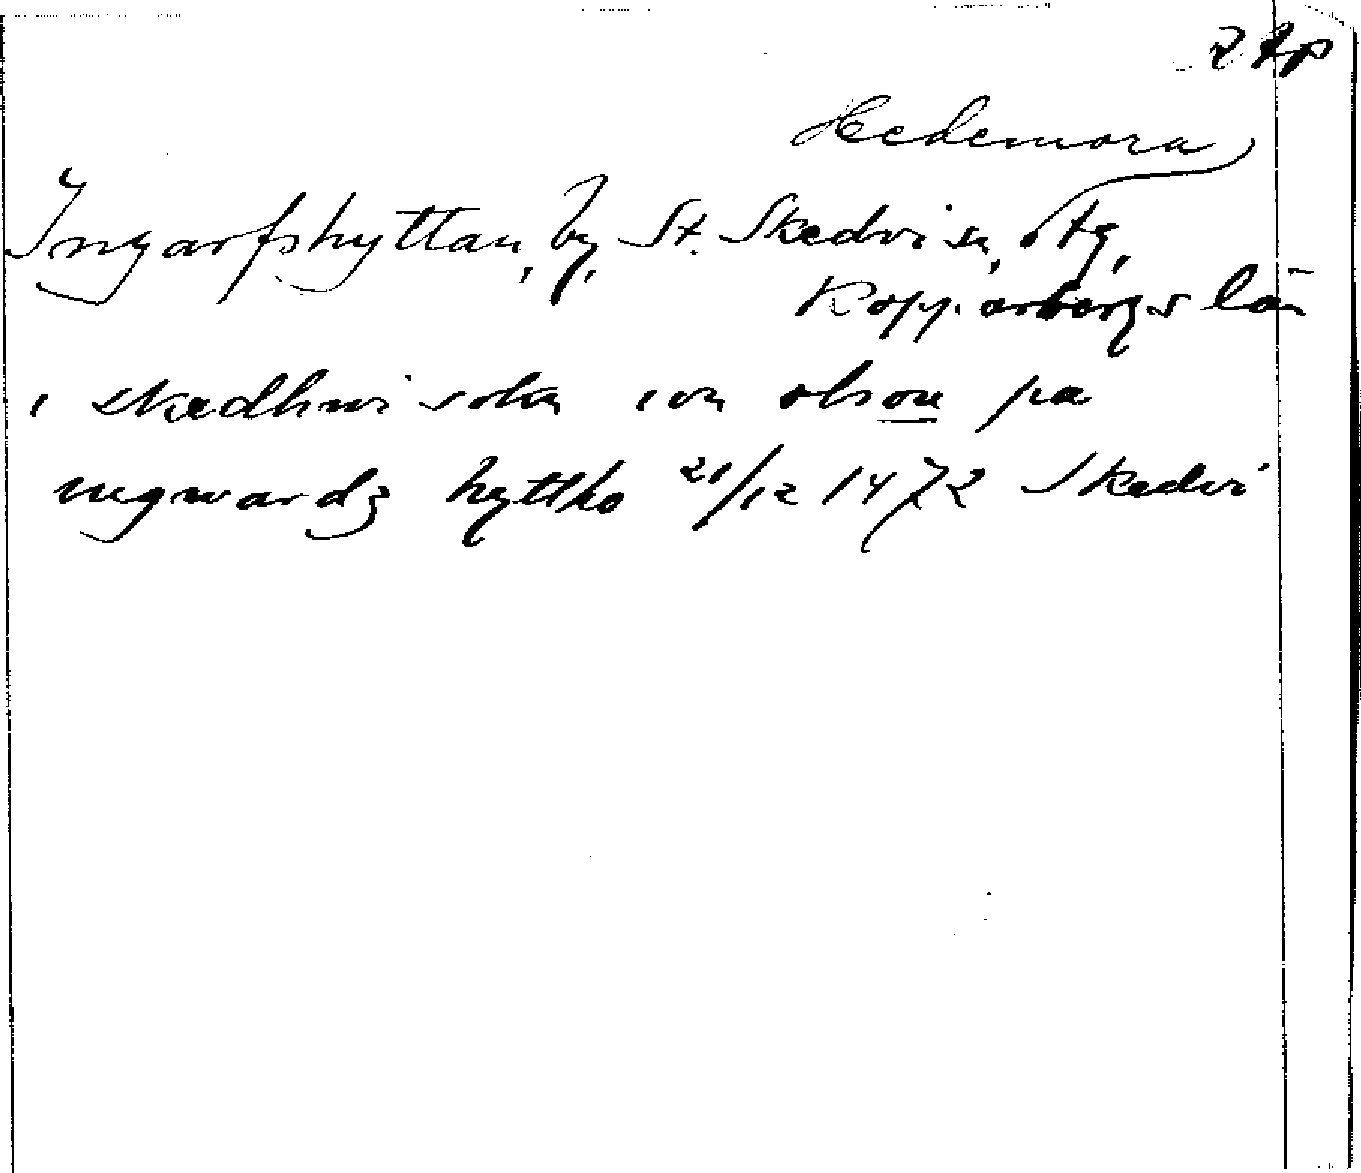 Hedemora
Ingarfshyttan, by, St. Skedvi sn, tg,
Kopparbergs län
i skedhwi sokn ion olson pa
ingwardz hyttho 21/12 1472 Skedvi